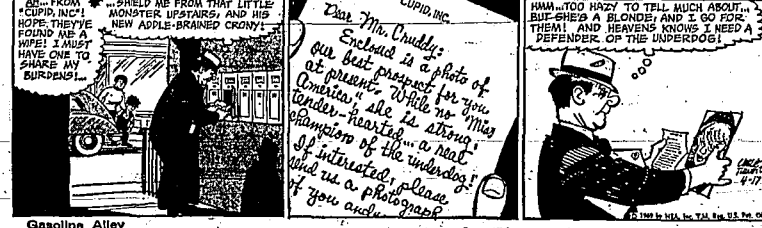 AH... FROM
"CUPID, INC"! 
HOPE THEY'VE
FOUND ME A
WIFE! I MUST
HAVE ONE TO
SHARE MY
BURDENS!...
...SHIELD ME FROM THAT LITTLE
MONSTER UPSTAIRS, AND HIS
NEW ADDLE-BRAINED CRONY!
CUPID, INC.
Dear Mr. Chuddy:
Enclosd is a photo of
our best prospect for you
at present. While no "Miss
America," she is strong,
tender-hearted... a real
champion of the underdog!
If interested, please
send us a photograph
of you and
HMM...TOO HAZY TO TELL MUCH ABOUT...
BUT SHE'S A BLONDE, AND I GO FOR
THEM! AND HEAVENS KNOWS I NEED A
DEFENDER OF THE UNDERDOG!
4-17
© 1969 by NEA, Inc. T.M. Reg. U.S. Pat. Off.
Gasoline Alley